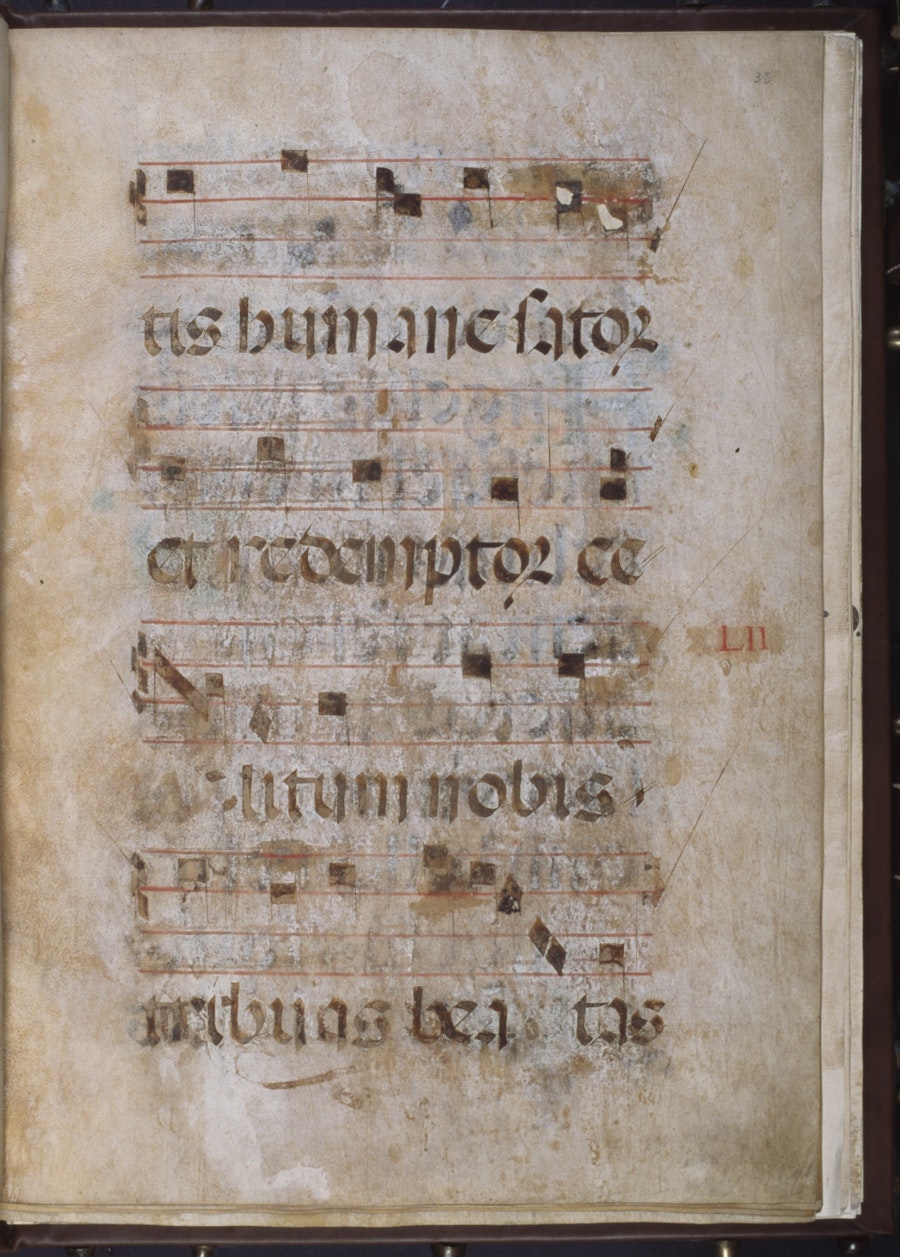 35
tis humane sator
et redemptor ce
LII
litum nobis
tribuas bea tas